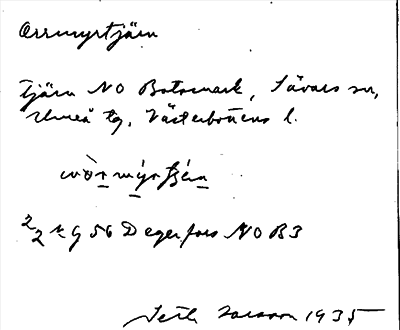 Orrmyrtjärn
tjärn NO Botsmark, Sävars sn,
Umeå tg, Västerbottens l.
2/2 r g 56 Degerfors NO B3
Seth Larsson 1935